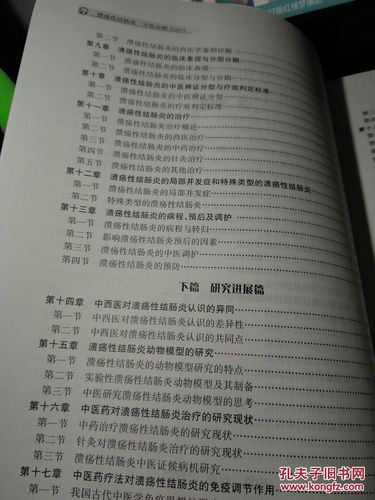 溃疡性结肠炎 中医诊断与治疗
第二节 溃疡性结肠炎的西医学鉴别诊断
第九章 溃疡性结肠炎的临床表现与分型分期
第一节 溃疡性结肠炎的临床表现
第二节 溃疡性结肠炎的临床分型与分期
第十章 溃疡性结肠炎的中医辨证分型与疗效判定标准
第一节 溃疡性结肠炎的中医辨证分型
第二节 溃疡性结肠炎的疗效判定标准
第十一章 溃疡性结肠炎的治疗
第一节 溃疡性结肠炎治疗概论
第二节 溃疡性结肠炎的西医治疗
第三节 溃疡性结肠炎的中药治疗
第四节 溃疡性结肠炎的针灸治疗
第五节 溃疡性结肠炎的其他治疗
第十二章 溃疡性结肠炎的局部并发症和特殊类型的溃疡性结肠炎
第一节 溃疡性结肠炎的局部并发症
第二节 特殊类型的溃疡性结肠炎
第十三章 溃疡性结肠炎的病程、预后及调护
第一节 溃疡性结肠炎的病程与转归
第二节 影响溃疡性结肠炎预后的因素
第三节 溃疡性结肠炎的中医调护
第四节 溃疡性结肠炎的预防
下篇 研究进展篇
第十四章 中西医对溃疡性结肠炎认识的异同
第一节 中西医对溃疡性结肠炎认识的差异性
第二节 中西医对溃疡性结肠炎认识的共同点
第十五章 溃疡性结肠炎动物模型的研究
第一节 溃疡性结肠炎的动物模型研究的特点
第二节 实验性溃疡性结肠炎动物模型及其制备
第三节 中医研究溃疡性结肠炎动物模型的思考
第十六章 中医药对溃疡性结肠炎治疗的研究现状
第一节 中药治疗溃疡性结肠炎的研究现状
第二节 针灸对溃疡性结肠炎治疗的研究现状
第三节 溃疡性结肠炎中医证候病机研究
第十七章 中医药疗法对溃疡性结肠炎的免疫调节作用
第一节 我国古代中医学免疫思想
孔夫子旧书网